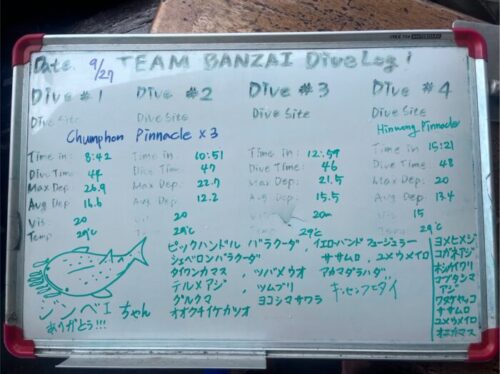 Date 9/27 TEAM BANZAI Dive Log!
Dive #1 Dive #2 Dive #3 Dive #4
Dive Site Dive Site Dive Site
Chumphon Pinnacle x3 Hinngeng Pinnacle
Time in: 8:42 Time in: 10:51 Time in: 12:59 15:21
Dive Time: 44 Dive Time: 47 Dive Time: 46 Dive Time: 48
Max Dep: 26.9 Max Dep: 22.7 Max Dep: 21.5 Max Dep: 20
Avg Dep: 16.6 Avg Dep: 12.2 Avg Dep: 15.5 Avg Dep: 13.4
Vis: 20 Vis: 20 20m Vis: 15
Temp 29℃ 29℃ 29℃ Temp 29℃
ピックハンドル バラクーダ、イエローバンド フュージュラー
シェベロンバラクーダ ササムロ、ユメウメイロ
タイワンカマス、ツバメウオ アカマダラハタ
テルメアジ、ツムブリ キンセンフエダイ
グルクマ ヨコシマサワラ
オオクチイケカツオ
ジンベエちゃん
ありがとう!!!
ヨメヒメジ
コガネアジ
ホシカイワリ
ナブタシマアジ
ワヌケヤッコ
ササムロ
ユメウメイロ
オニカマス